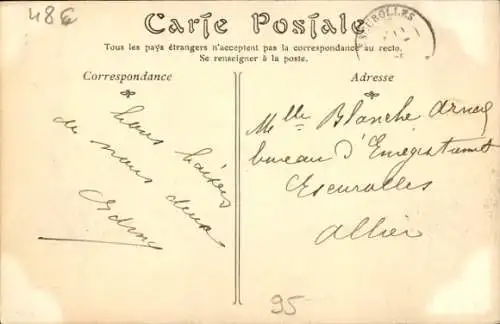 48€
Carte Postale
ESCUROLLES
Tous les pays étrangers n'acceptent pas la correspondance au recto.
Se renseigner à la poste.
Correspondance
bons baisers
de nous deux
Adresse
Melle Blanche
bureau d'Enregistrement
Escurolles
Allier
95